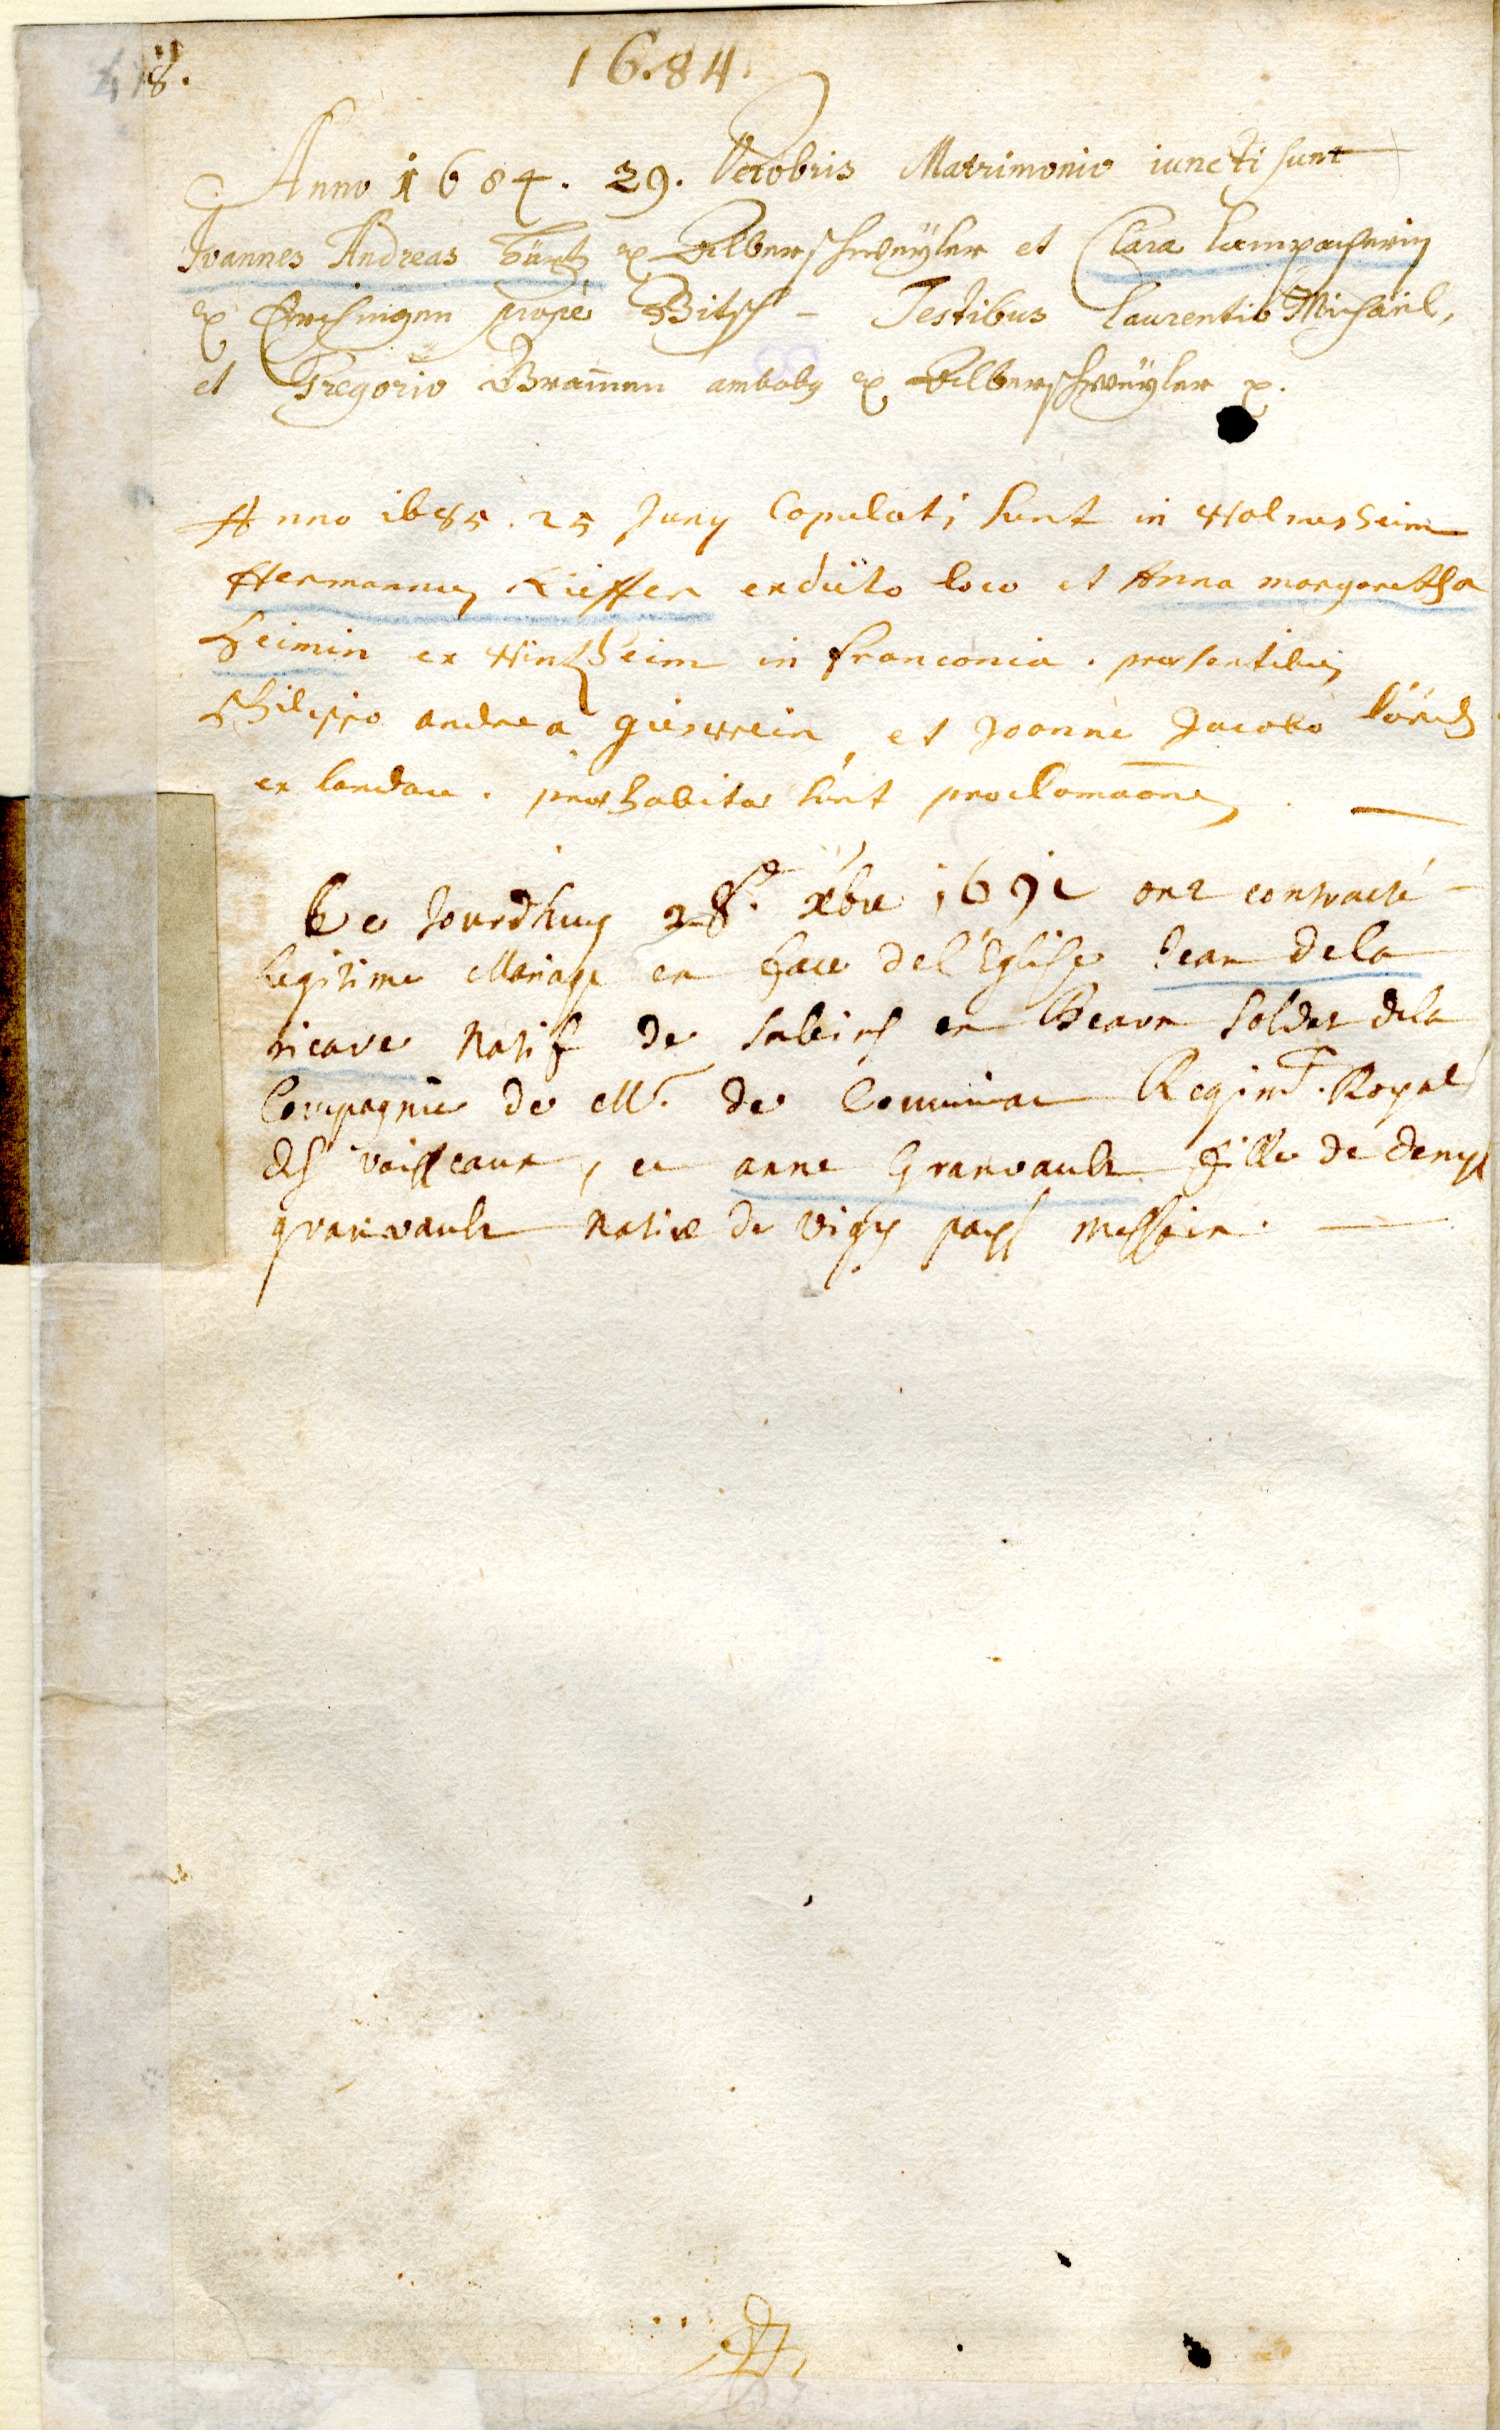 18.
1684
Anno 1684. 29. Octobris Matrimonio iuncti sunt
Joannes Andreas ex Alberschweyler et Clara Lampacherin
ex prope Bitsch - Testibus Laurentio Michäel,
et Gregorio ambobus ex Alberschweyler
Anno 1685. 25 Juny Copulati sunt in Wolmesheim
Hermannus Kieffer ex dicto loco et Anna margaretha
Heimin ex Wintzheim in franconia. praesentibus
Philippo andrea et Joanne Jacobo
ex landau. praehabitae sunt proclamaones
Ce Jourdhuy 28e. xbre 1691 ont contracté
legitime Mariage en face de l'Eglise Jean dela
ricave Natif de en Bearn soldat dela
Compagnie de Mr. de Comminac Regimt. Royal
des vaisseaux, et anne Granvault fille de denys
granvault Native de vigy pays messain.